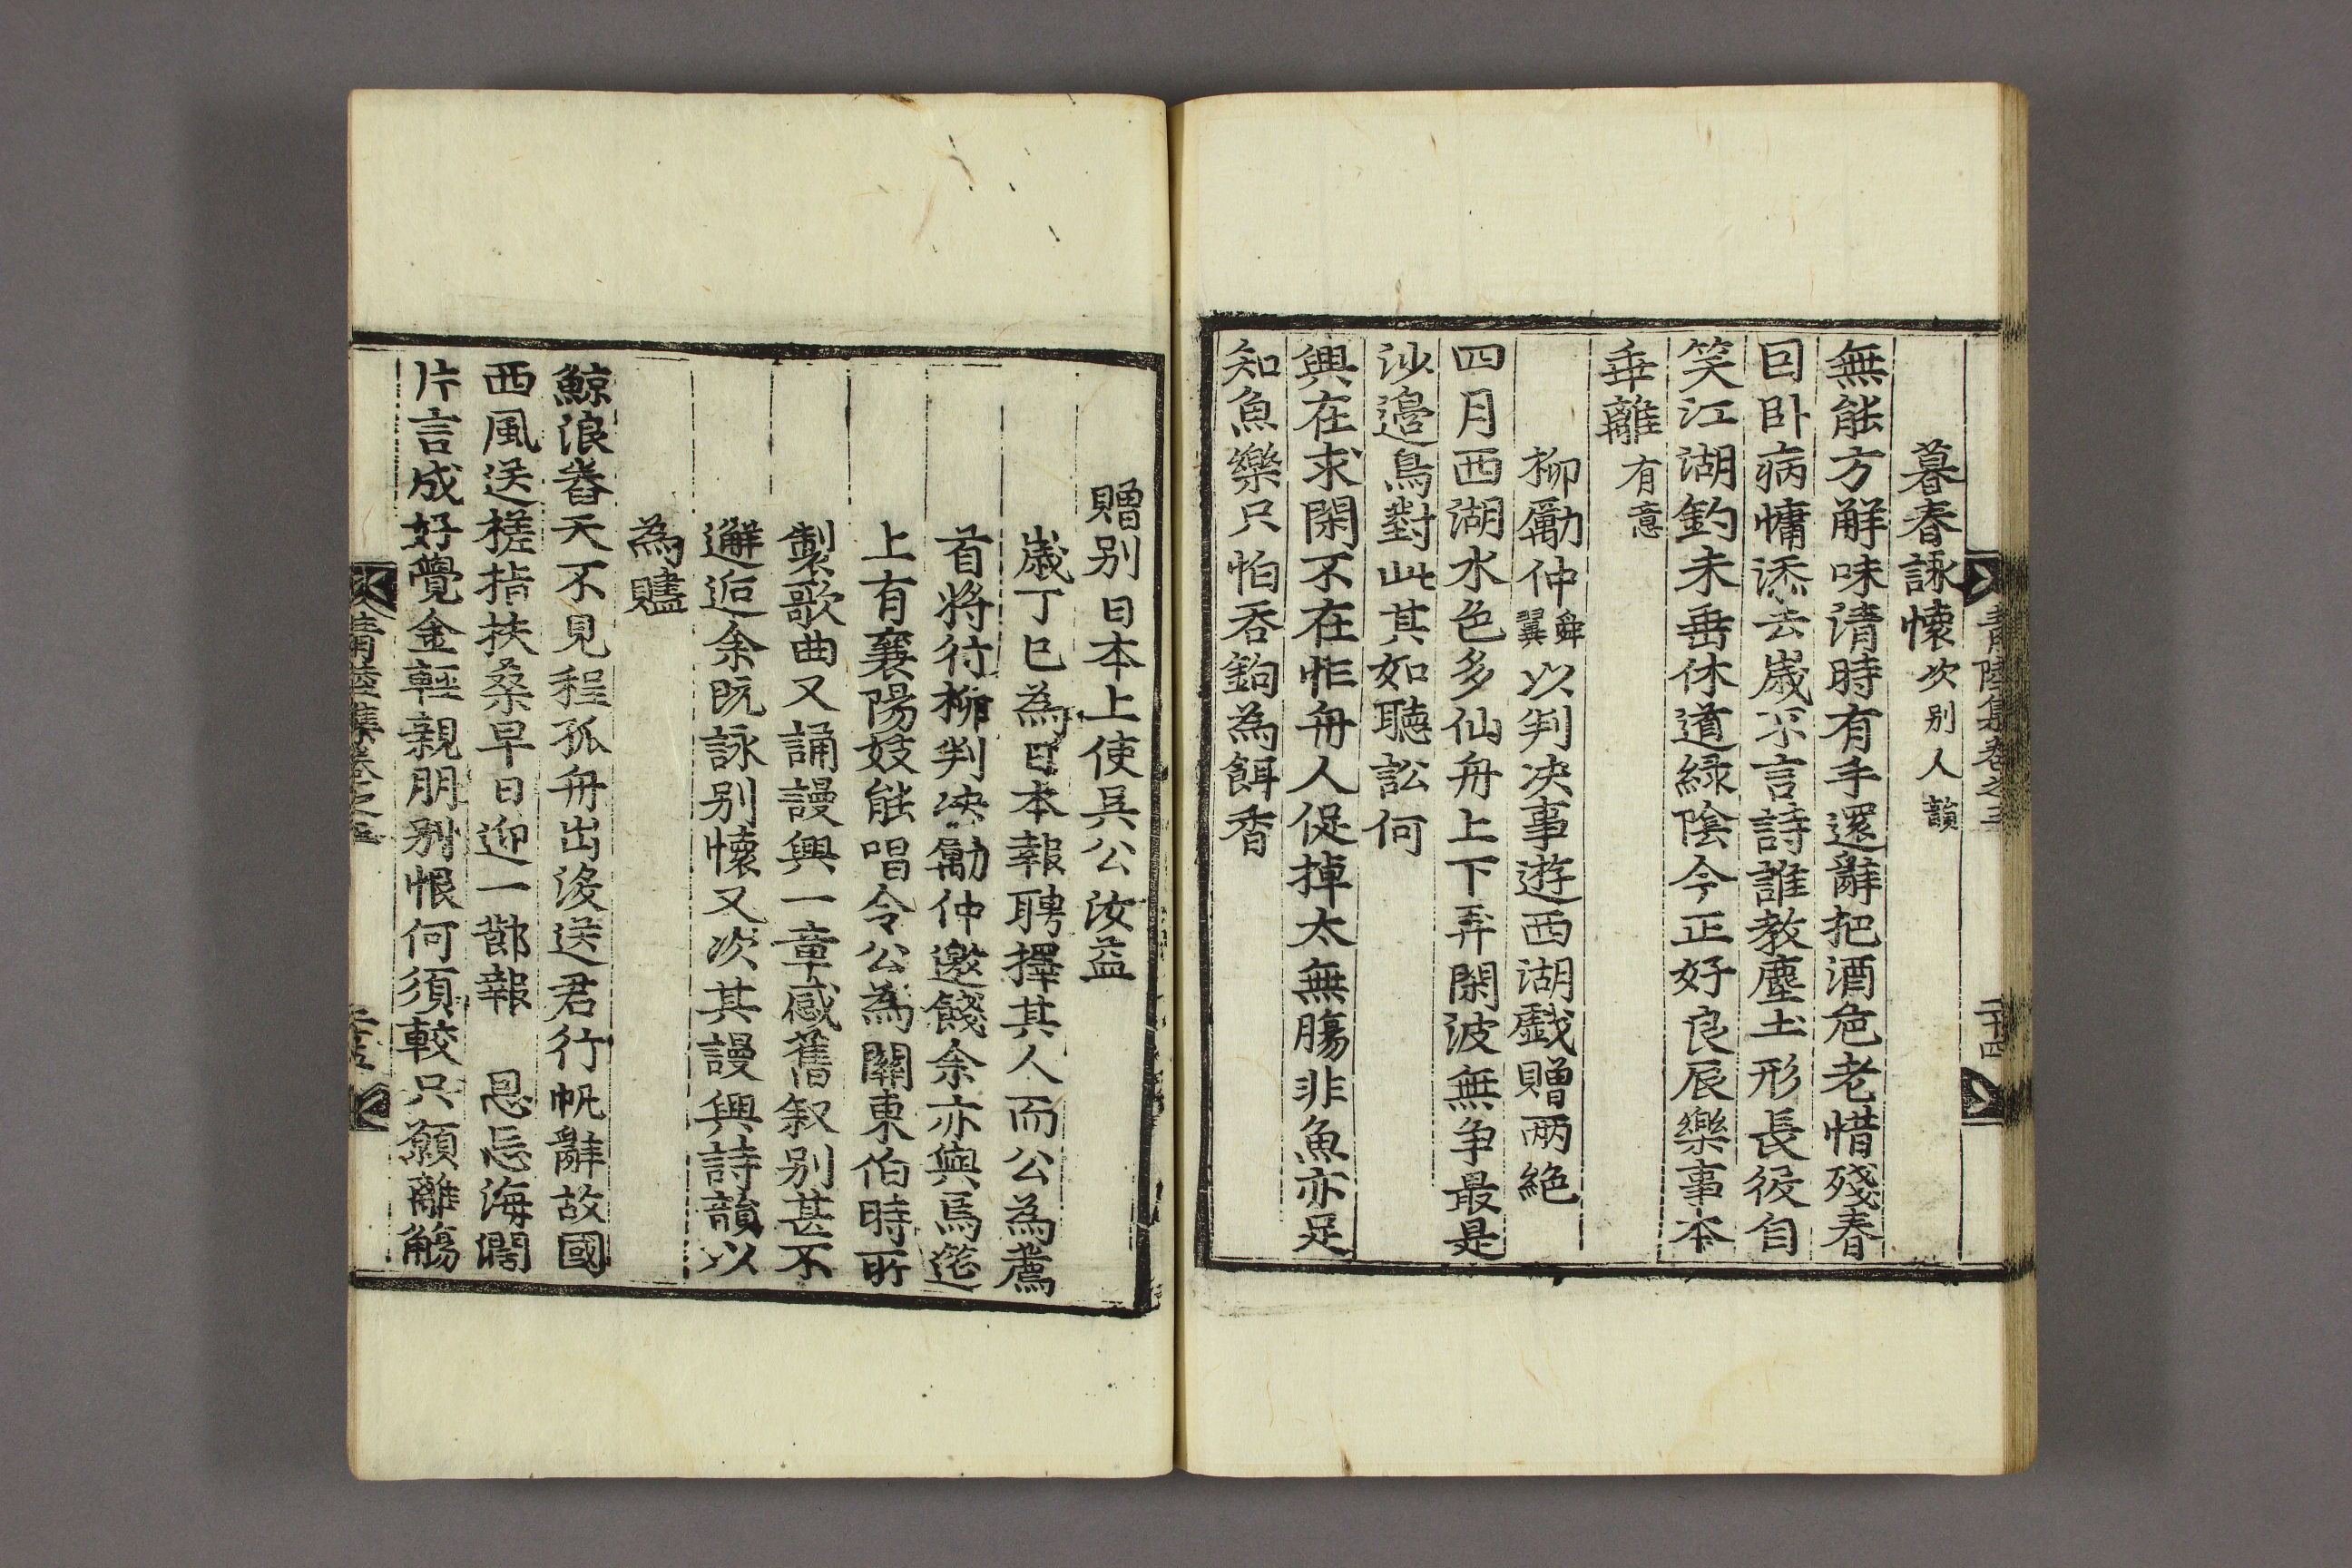 青陸集卷之三 二十四
暮春詠懷次別人韻
無能方解味淸時有手還辭把酒危老惜殘春
因卧病慵添去歲不言詩誰敎塵土形長役自
笑江湖釣未垂休道綠陰今正好良辰樂事本
乖離有意
柳勵仲舜翼以判决事遊西湖戱贈兩絶
四月西湖水色多仙舟上下弄閑波無爭最是
沙邉鳥對此其如聽訟何
興在求閑不在忙舟人促掉太無膓非魚亦足
知魚樂只怕吞鉤爲餌香
贈别日本上使吳公汝益
歲丁巳爲日本報聘擇其人而公爲薦
首將行柳判决勵仲邀餞余亦與焉筵
上有襄陽妓能唱令公爲關東伯時所
製歌曲又誦謾興一章感舊叙别甚不
邂逅余旣詠别懷又次其謾興詩韻以
爲贐
鯨浪舂天不見程孤舟出沒送君行帆辭故國
西風送槎指扶桑早日迎一節報 恩忘海濶
片言成好覺金輕親朋别恨何須較只願離觴
靑陸集卷之三 二十五